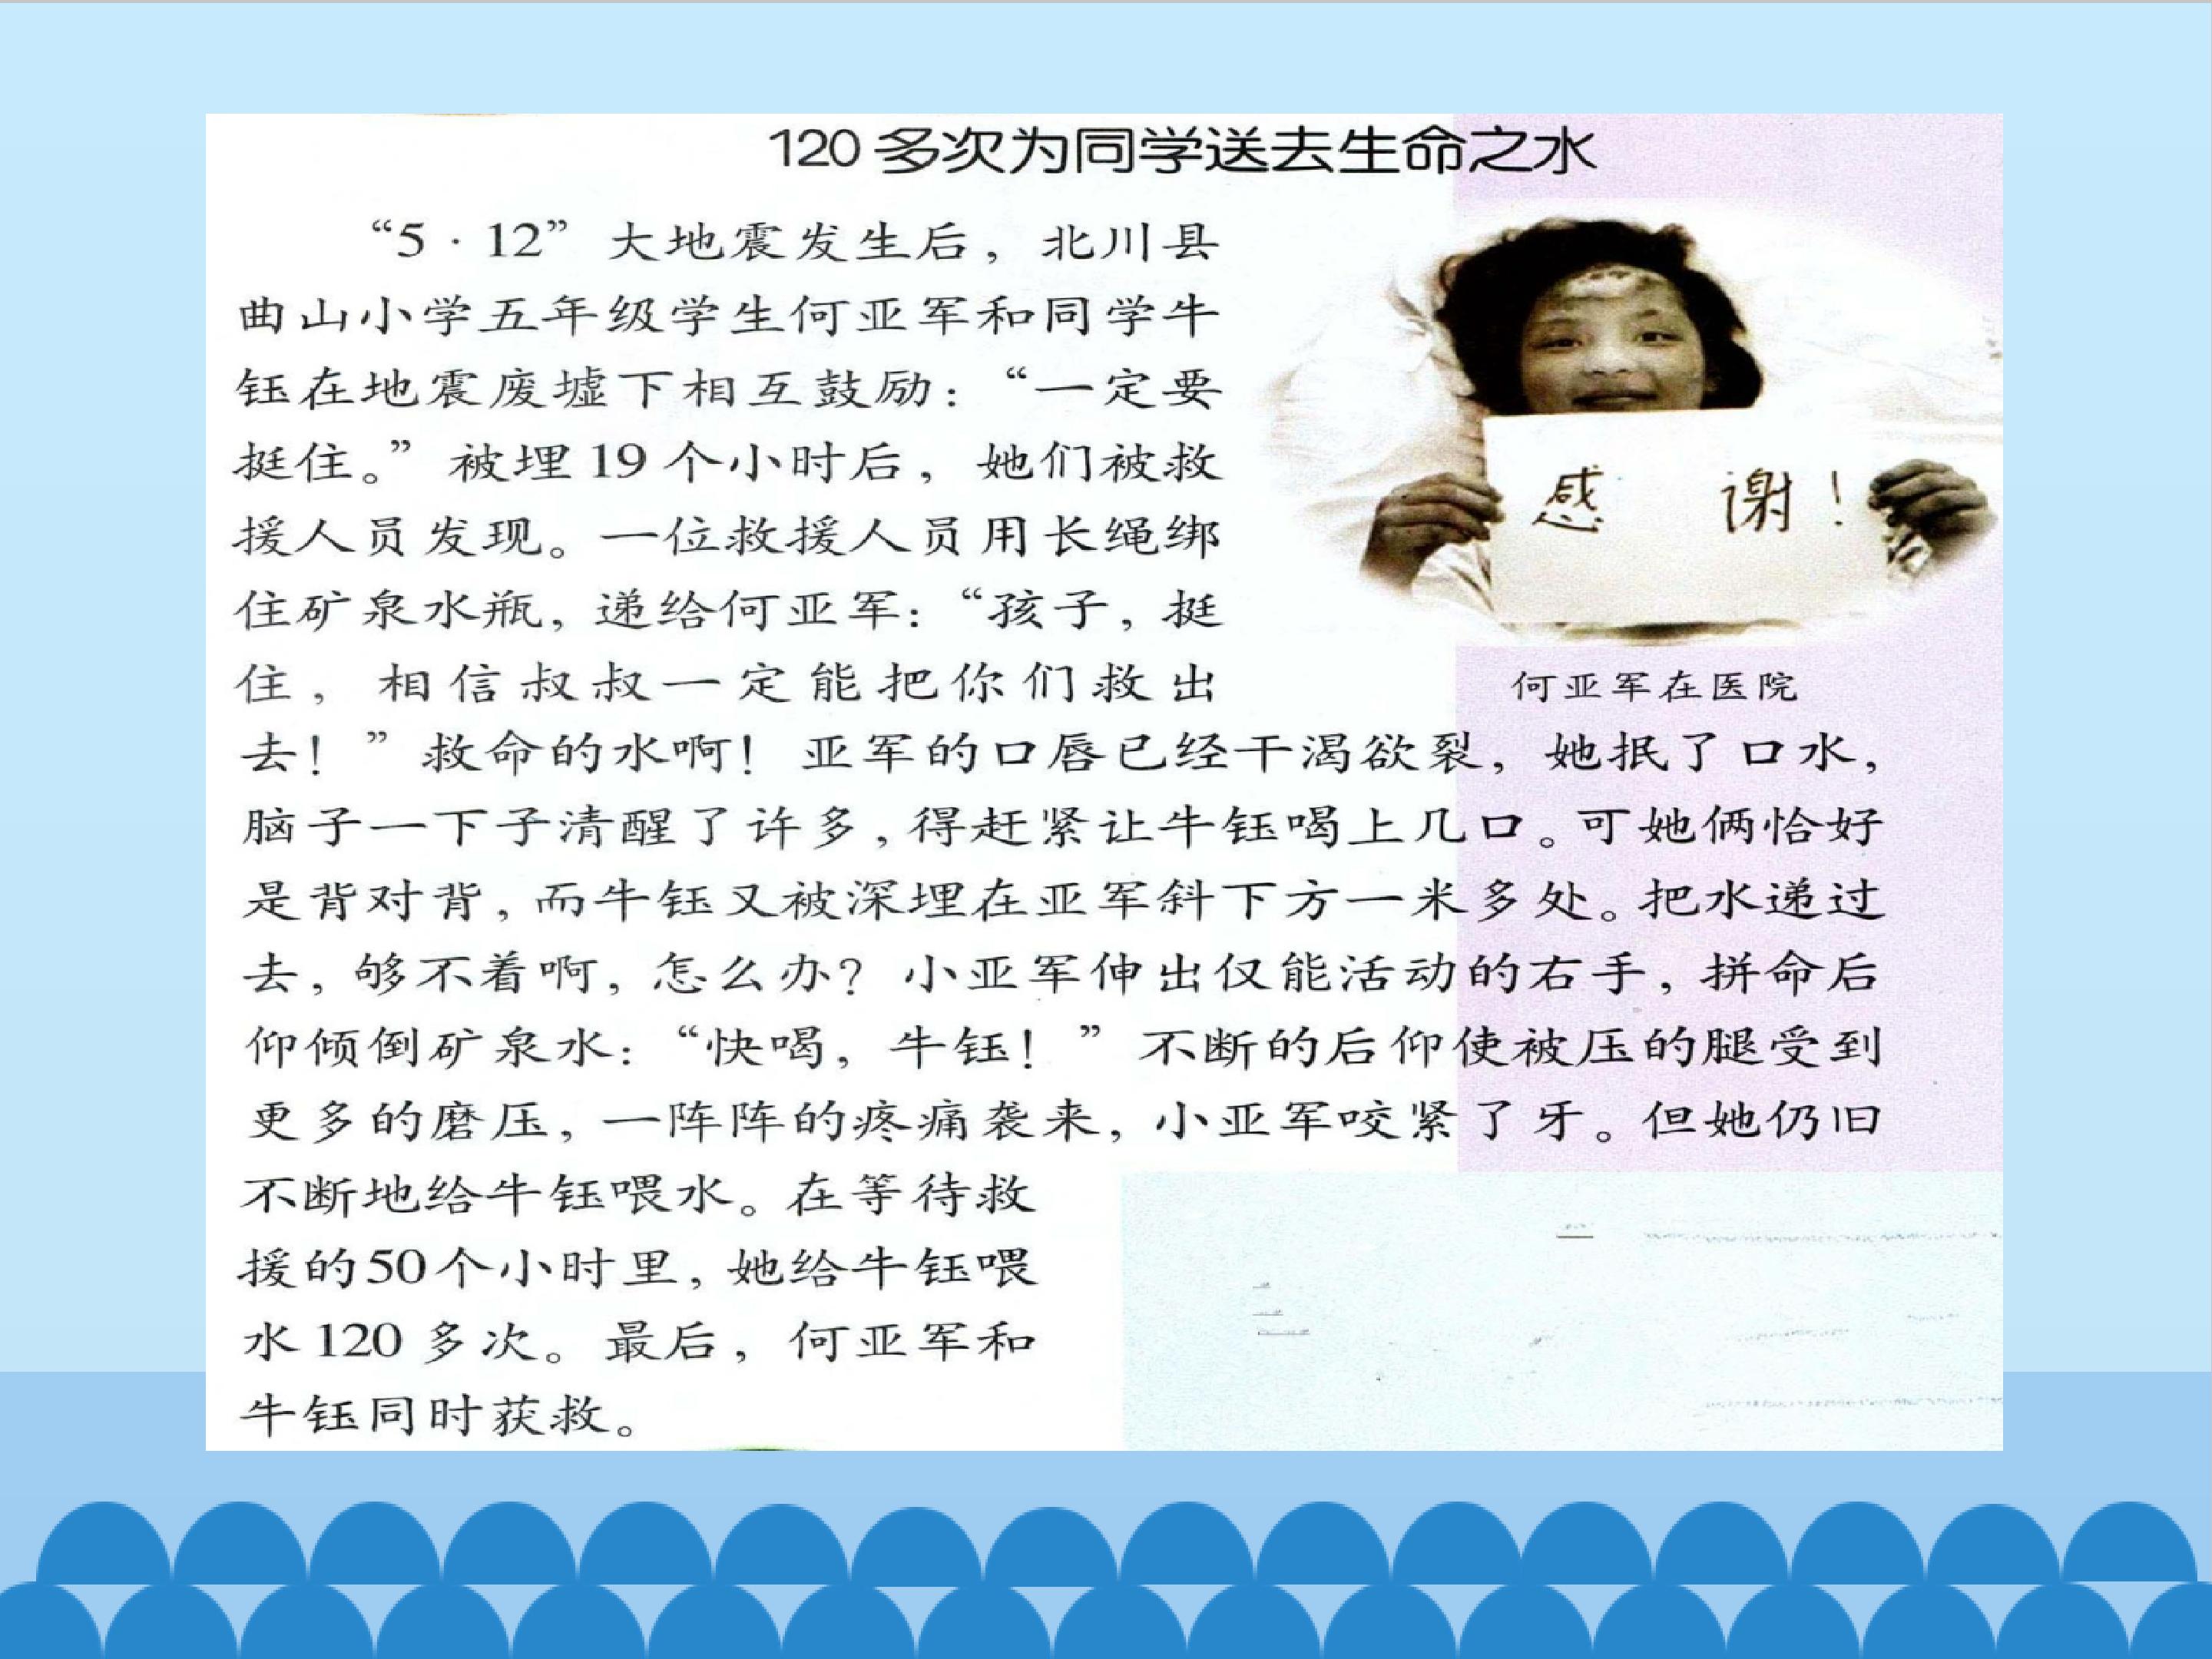 120多次为同学送去生命之水
“5·12”大地震发生后，北川县
曲山小学五年级学生何亚军和同学牛
钰在地震废墟下相互鼓励：“一定要
挺住。”被埋19个小时后，她们被救
援人员发现。一位救援人员用长绳绑
住矿泉水瓶，递给何亚军：“孩子，挺
住，相信叔叔一定能把你们救出
去！”救命的水啊！亚军的口唇已经干渴欲裂，她抿了口水，
脑子一下子清醒了许多，得赶紧让牛钰喝上几口。可她俩恰好
是背对背，而牛钰又被深埋在亚军斜下方一米多处。把水递过
去，够不着啊，怎么办？小亚军伸出仅能活动的右手，拼命后
仰倾倒矿泉水：“快喝，牛钰！”不断的后仰使被压的腿受到
更多的磨压，一阵阵的疼痛袭来，小亚军咬紧了牙。但她仍旧
不断地给牛钰喂水。在等待救
援的50个小时里，她给牛钰喂
水120多次。最后，何亚军和
牛钰同时获救。
感 谢！
何亚军在医院